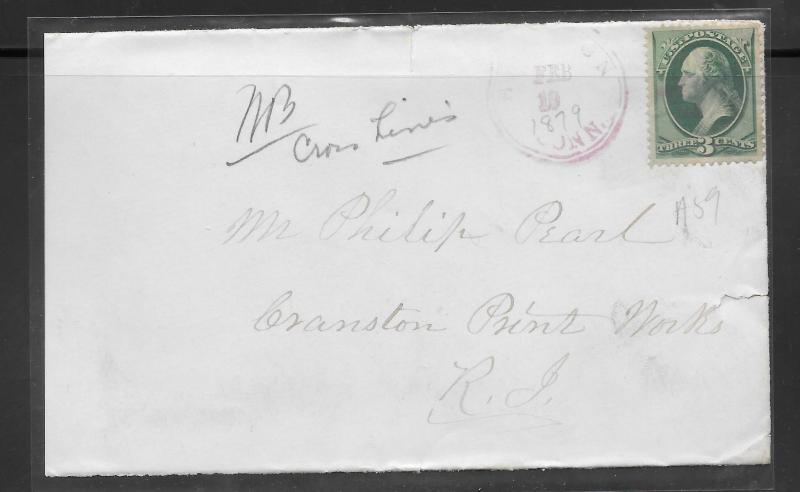 U.S. POSTAGE
THREE 3 CENTS
FEB
10
1879
CONN.
NB
Cross Lines
A59
Mr Philip Pearl
Cranston Print Works
R.I.